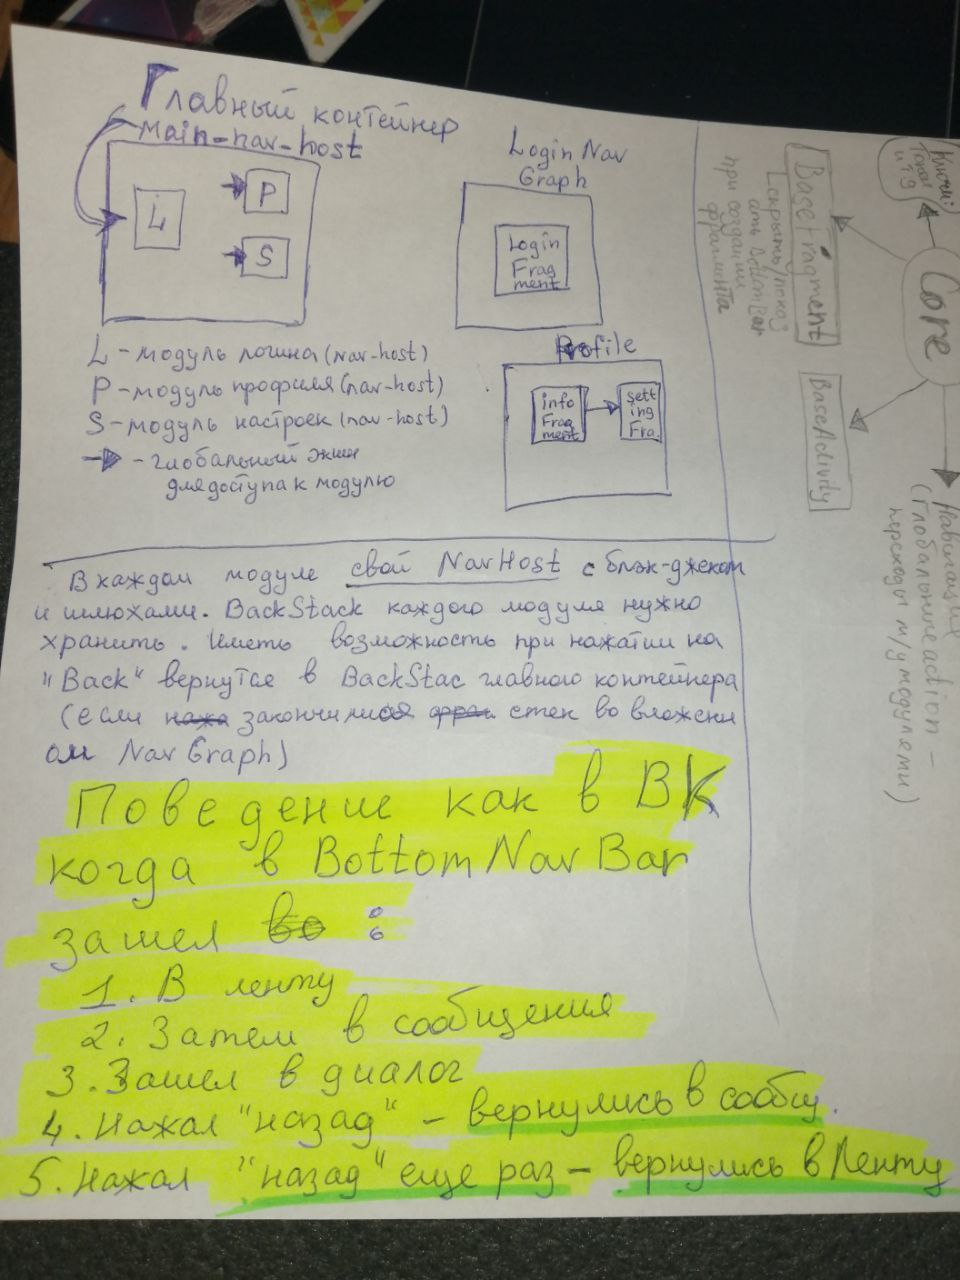 Главный контейнер
main-nav-host
L
P
S
Login Nav
Graph
Login
Frag
ment
L - модуль логина (nav-host)
P - модуль профиля (nav-host)
S - модуль настроек (nav-host)
- глобальный экшн
для доступа к модулю
Profile
info
Frag
ment
sett
ing
Fra.
Ключи:
Токен
и т.д
Core
BaseFragment
(скрыть/показ
ать BottomBar
при создании
фрагмента
BaseActivity
Навигация
(Глобальные action -
переходы м/у модулями)
В каждом модуле свой NavHost с блэк-джеком
и шлюхами. BackStack каждого модуля нужно
хранить. Иметь возможность при нажатии на
"Back" вернутся в BackStac главного контейнера
(если закончился стек во вложенн
ом Nav Graph)
Поведение как в ВК
когда в BottomNavBar
зашел :
1. В ленту
2. Затем в сообщения
3. Зашел в диалог
4. Нажал "назад" - вернулись в сообщ.
5. Нажал "назад" еще раз - вернулись в Ленту